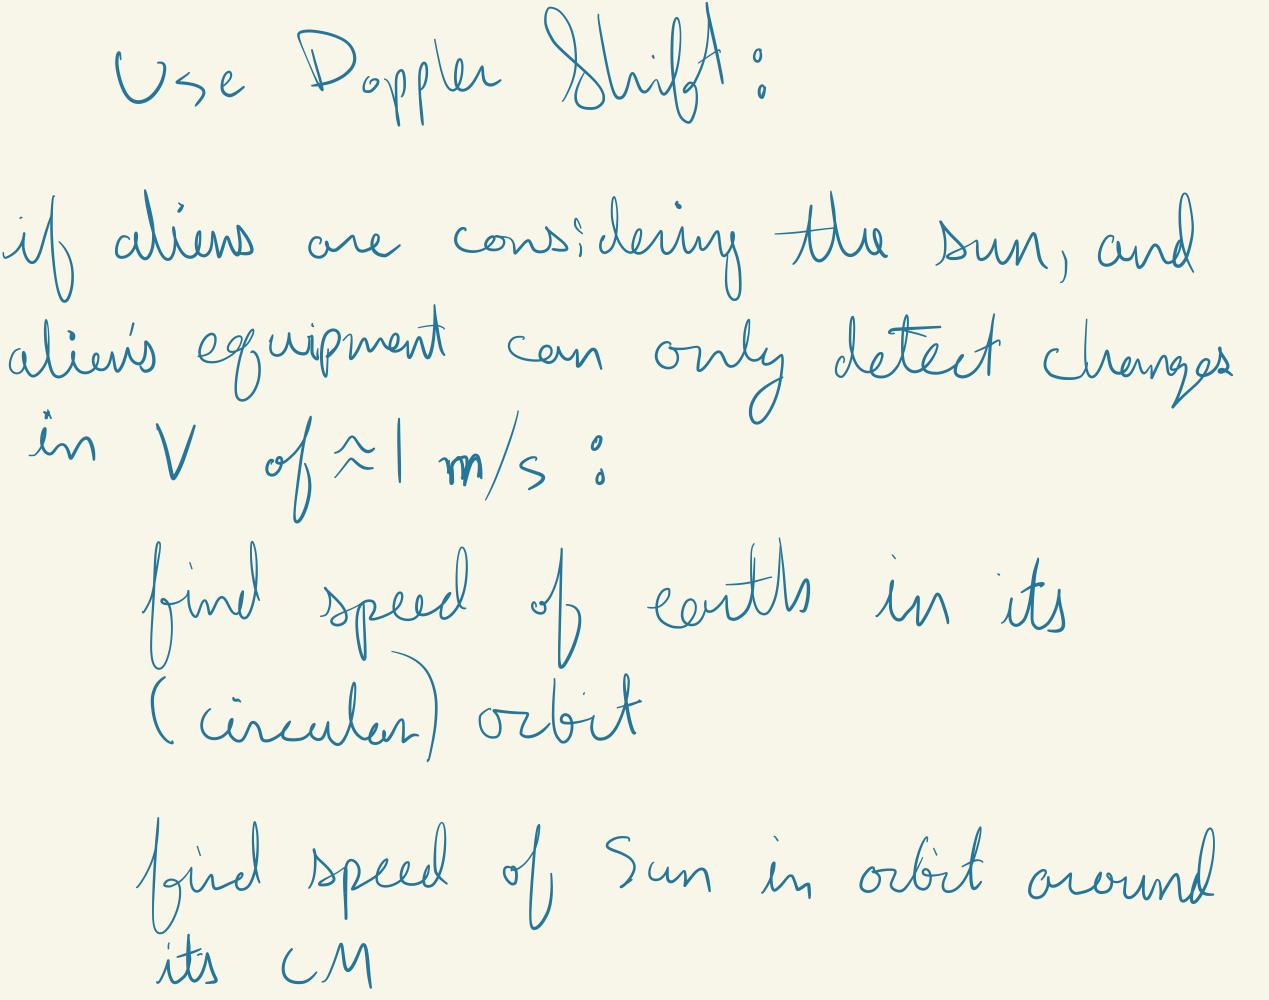 Use Doppler Shift:
if aliens are considering the sun, and
alien's equipment can only detect changes
in V of ≈1 m/s :
find speed of earth in its
(circular) orbit
find speed of Sun in orbit around
its CM